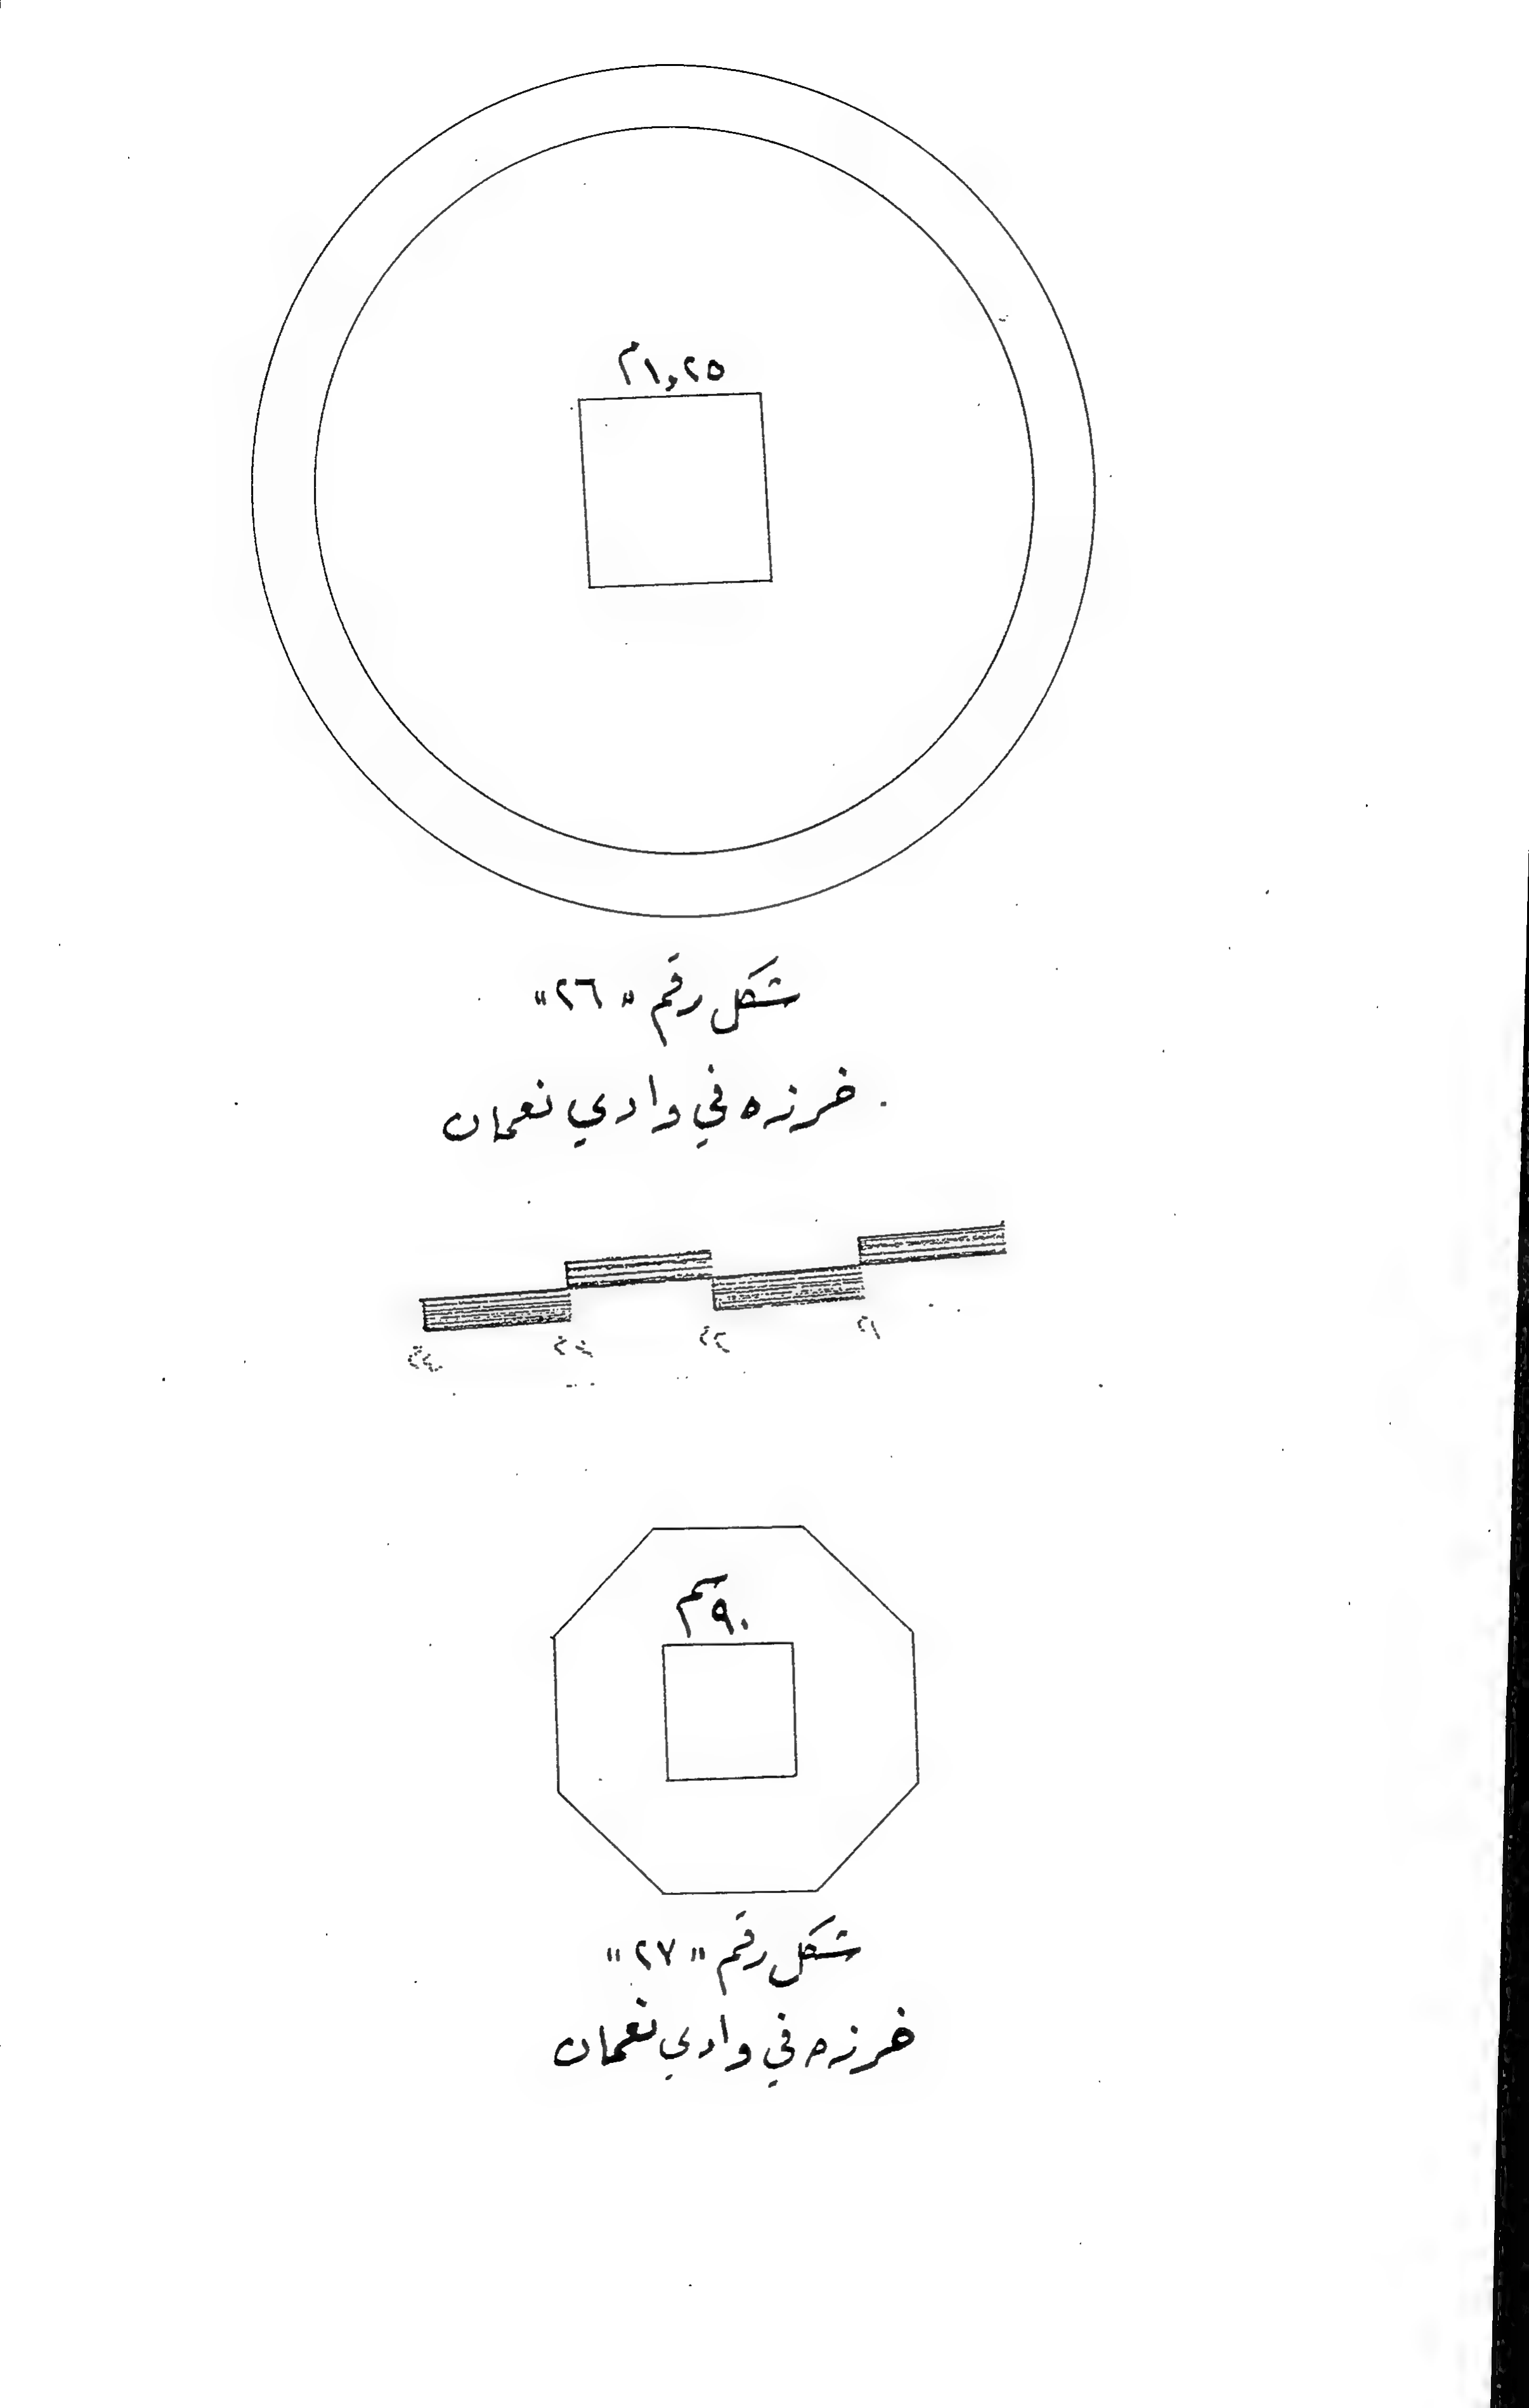 ١,٢٥م
شكل رقم "٢٦"
خرزه في وادي نعمان
٩٠سم
شكل رقم "٢٧"
خرزه في وادي نعمان